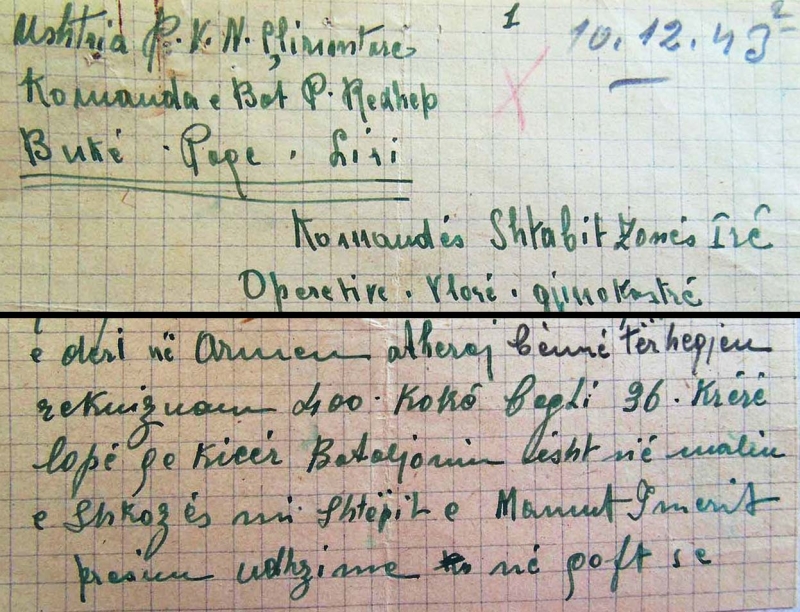 1
10.12.43
Ushtria P.K.N. Çlirimtarës
Komanda e Bat P. Rexhep
Bukë . Page . Liri
Komandës Shtabit Zonës Irê
Operetive . Vlorë . gjinokastrë
e deri në Armen atherej bënnë tërheqjen
rekuizuam 400. Kokë bagti 36. Krérë
lopë qe Bataljonin është në malin
e Shkozës mi Shtëpit e Mamut Imerit
presim udhzime në qoft se